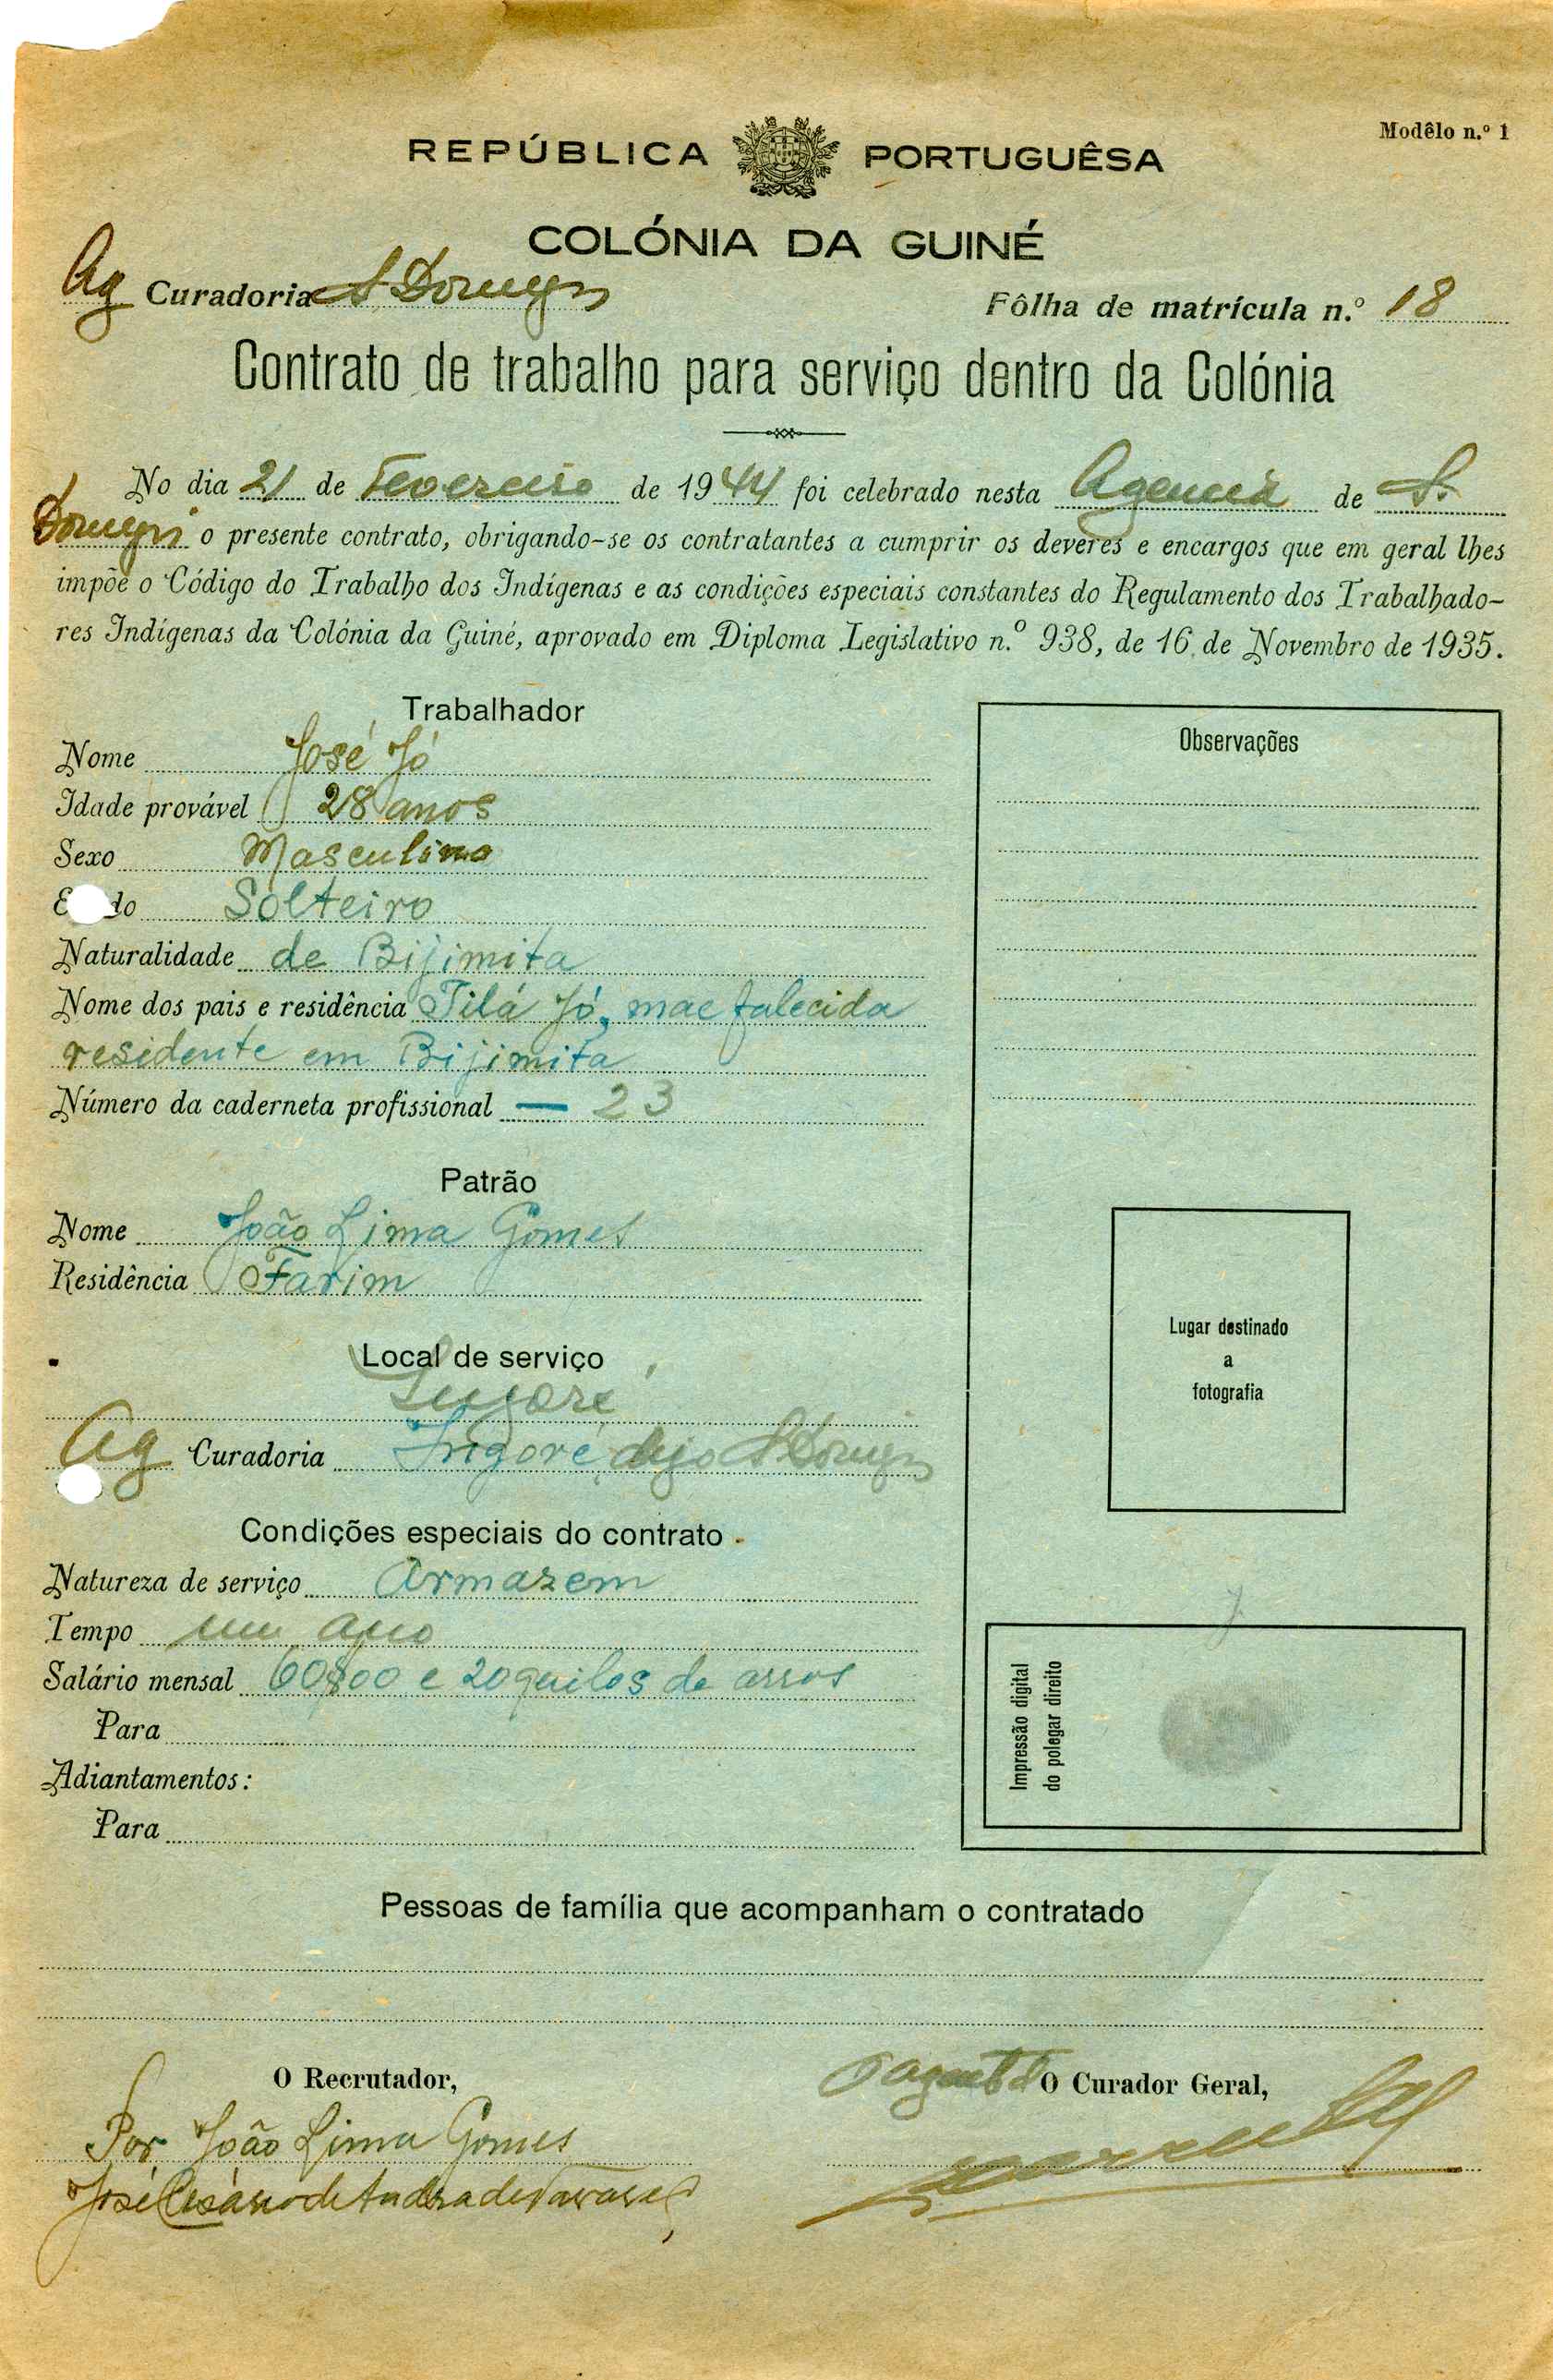 Modêlo n.º 1
REPÚBLICA PORTUGUÊSA
COLÓNIA DA GUINÉ
Ag Curadoria S Domingos
Fôlha de matrícula n.º 18
Contrato de trabalho para serviço dentro da Colónia
No dia 21 de Fevereiro de 1944 foi celebrado nesta Agencia de S.
Domingos o presente contrato, obrigando-se os contratantes a cumprir os deveres e encargos que em geral lhes
impõe o Código do Trabalho dos Indígenas e as condições especiais constantes do Regulamento dos Trabalhado-
res Indígenas da Colónia da Guiné, aprovado em Diploma Legislativo n.º 938, de 16 de Novembro de 1935.
Trabalhador
Nome José Jó
Idade provável 28 anos
Sexo Masculino
E do Solteiro
Naturalidade de Bijimita
Nome dos pais e residência Tilá Jó, mae falecida
residente em Bijimita
Número da caderneta profissional — 23
Patrão
Nome João Lima Gomes
Residência Farim
Local de serviço
Ingoré
Ag Curadoria Ingoré, S Domingos
Condições especiais do contrato
Natureza de serviço Armazem
Tempo um ano
Salário mensal 60$00 e 20 quilos de arros
Para
Adiantamentos:
Para
Observações
Lugar destinado
a
fotografia
Impressão digital
do polegar direito
Pessoas de família que acompanham o contratado
O Recrutador,
Por João Lima Gomes
José Cesário de Andrade Tavares
O agente d O Curador Geral,